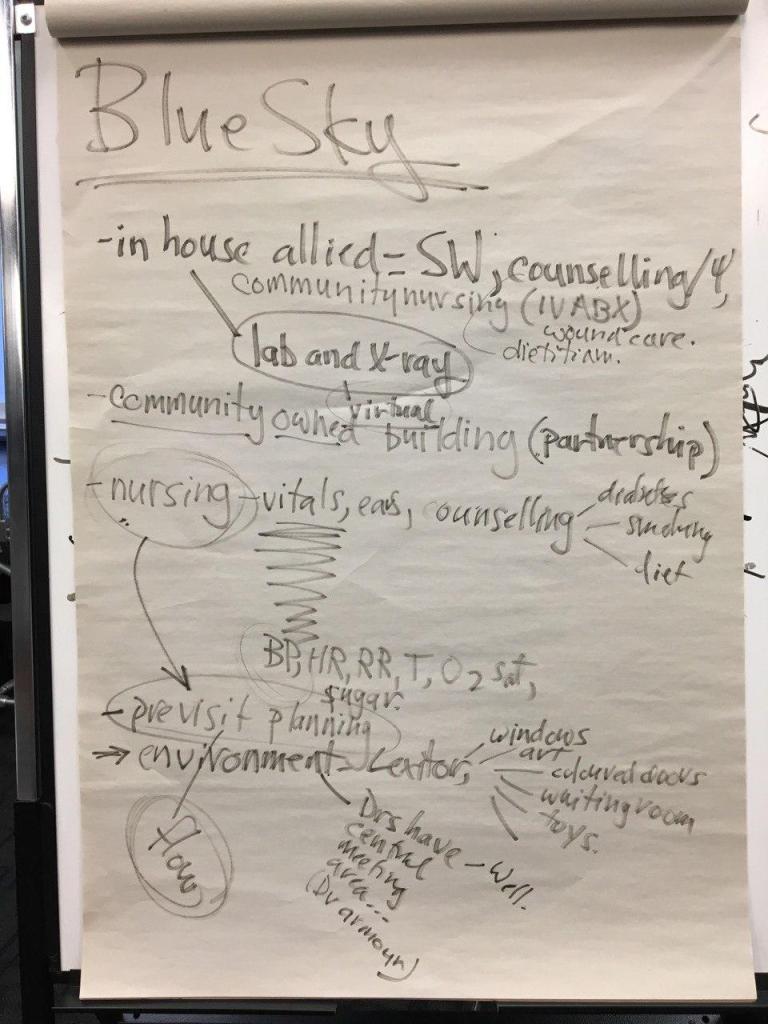 Blue Sky
- in house allied = SW, counselling/Ψ,
community nursing (IV ABX)
wound care.
dietitian.
lab and X-ray
virtual
- community owned building (partnership)
- nursing - vitals, ears, counselling
diabetes
smoking
diet
BP, HR, RR, T, O2 sat,
sugar.
- previsit planning
→ environment -
windows
art
coloured doors
waiting room
toys.
flow
Drs have - well.
central
meeting
area...
(Dr armour)